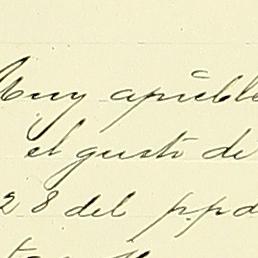 Muy apreciable
el gusto de
28 del p.pd